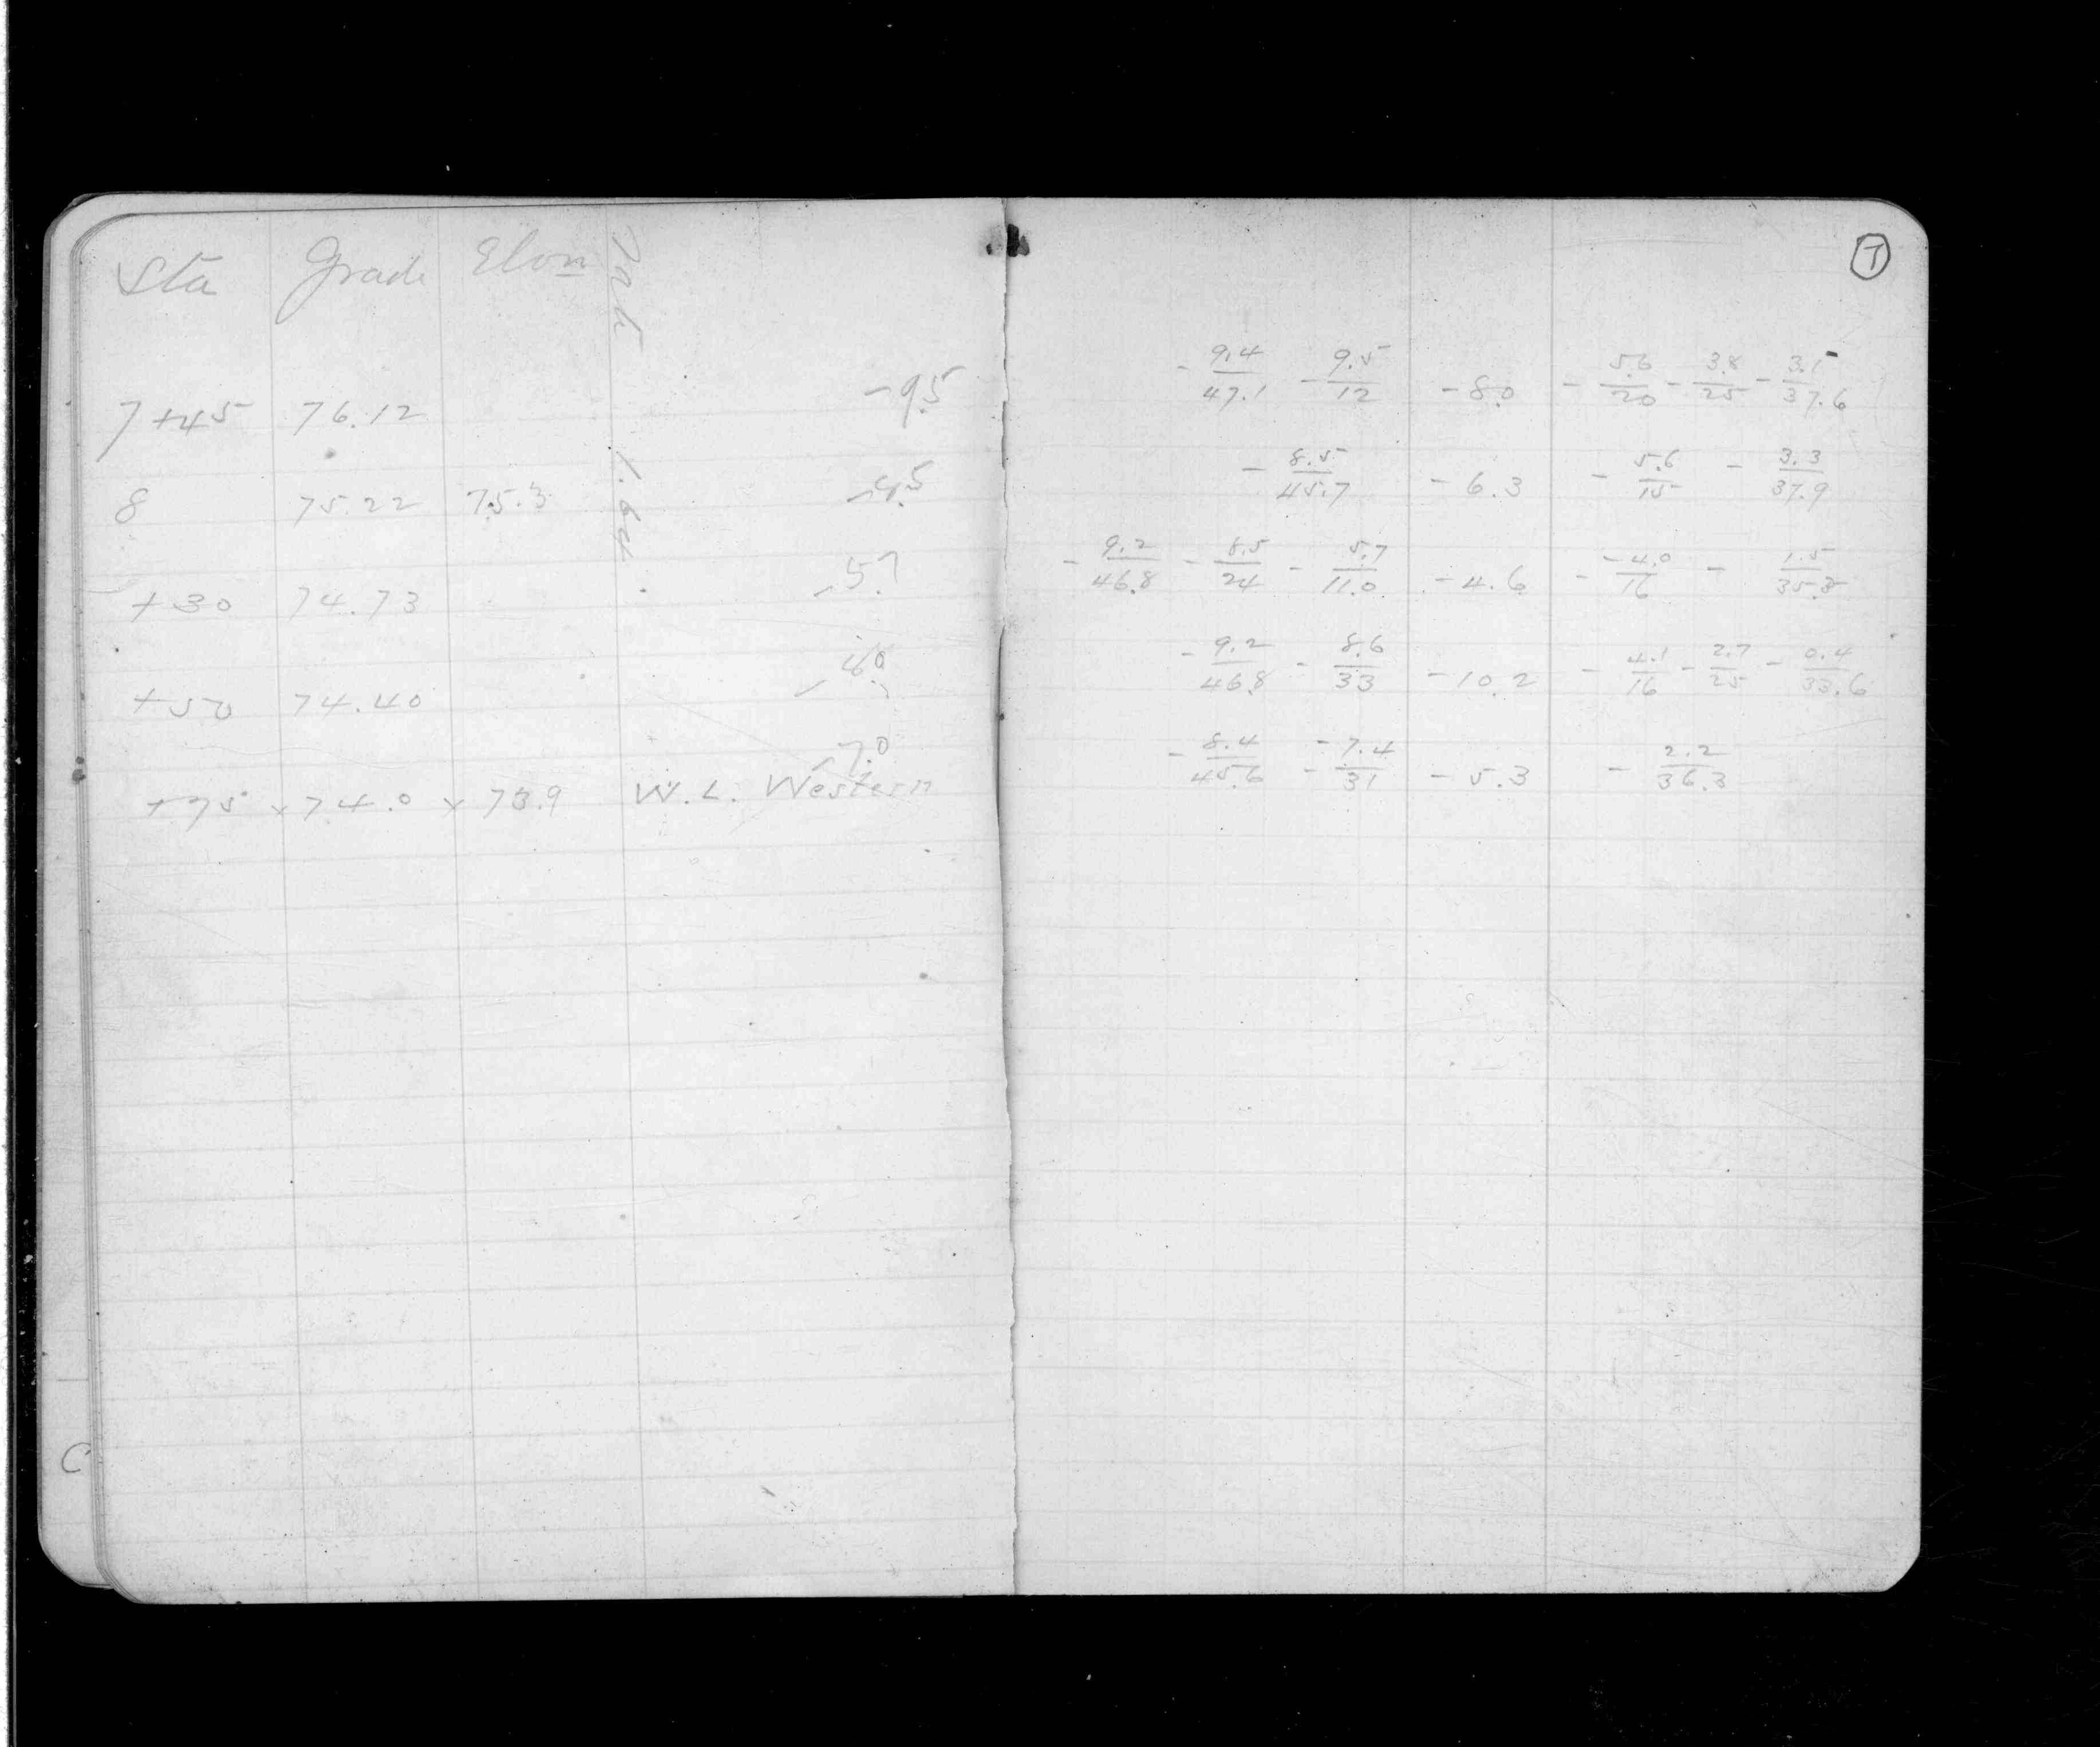 Sta Grade Elevn
7+45 76.12 -9.5
8 75.22 75.3
+30 74.73 -5.7
+50 74.40
+75 x 74.0 x 73.9 W.L. Western -7.0
1.64
7
- 9.4/47.1 - 9.5/12 -8.0 - 5.6/20 - 3.8/25 - 3.1/37.6
- 8.5/45.7 -6.3 - 5.6/15 - 3.3/37.9
- 9.2/46.8 - 8.5/24 - 5.7/11.0 -4.6 - -4.0/16 - 1.5/35.3
- 9.2/46.8 - 8.6/33 -10.2 - 4.1/16 - 2.7/25 - 0.4/33.6
- 8.4/45.6 - -7.4/31 -5.3 - 2.2/36.3
C